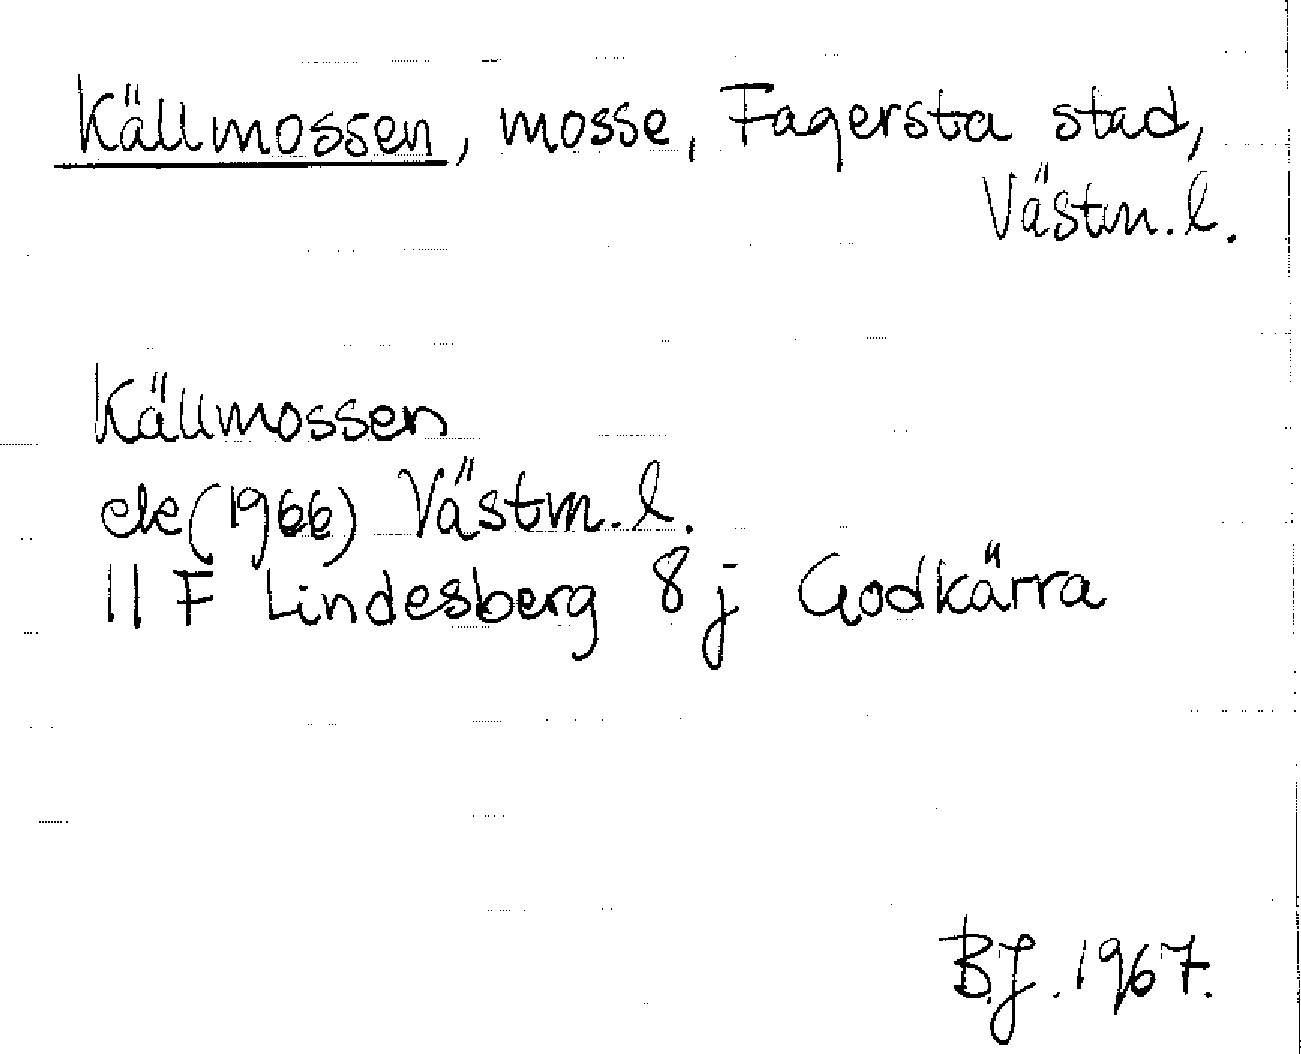 Källmossen, mosse, Fagersta stad,
Västm. l.
Källmossen
ek (1966) Västm. l.
11 F Lindesberg 8 j Godkärra
B.J. 1967.